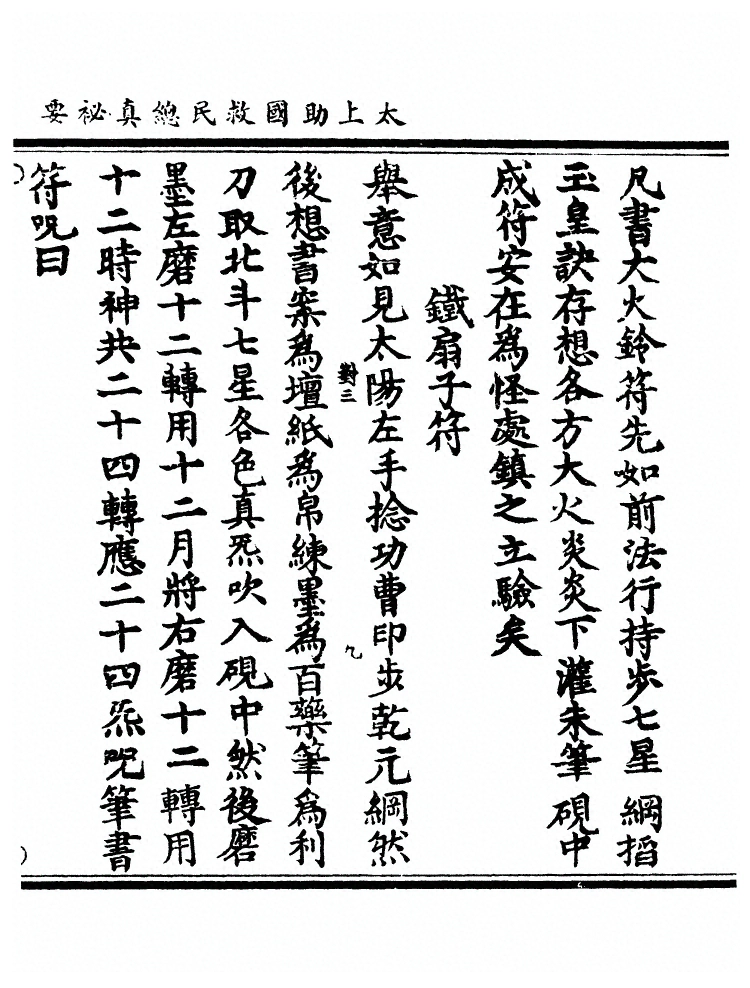 太上助國救民總真祕要
凡書大火鈴符先如前法行持步七星綱掐
玉皇訣存想各方大火炎炎下灌朱筆硯中
成符安在為怪處鎮之立驗矣
鐵扇子符
舉意如見太陽左手捻功曹印步乾元綱然
對三
九
後想書案為壇紙為帛練墨為百藥筆為利
刀取北斗七星各色真炁吹入硯中然後磨
墨左磨十二轉用十二月將右磨十二轉用
十二時神共二十四轉應二十四炁呪筆書
符呪曰